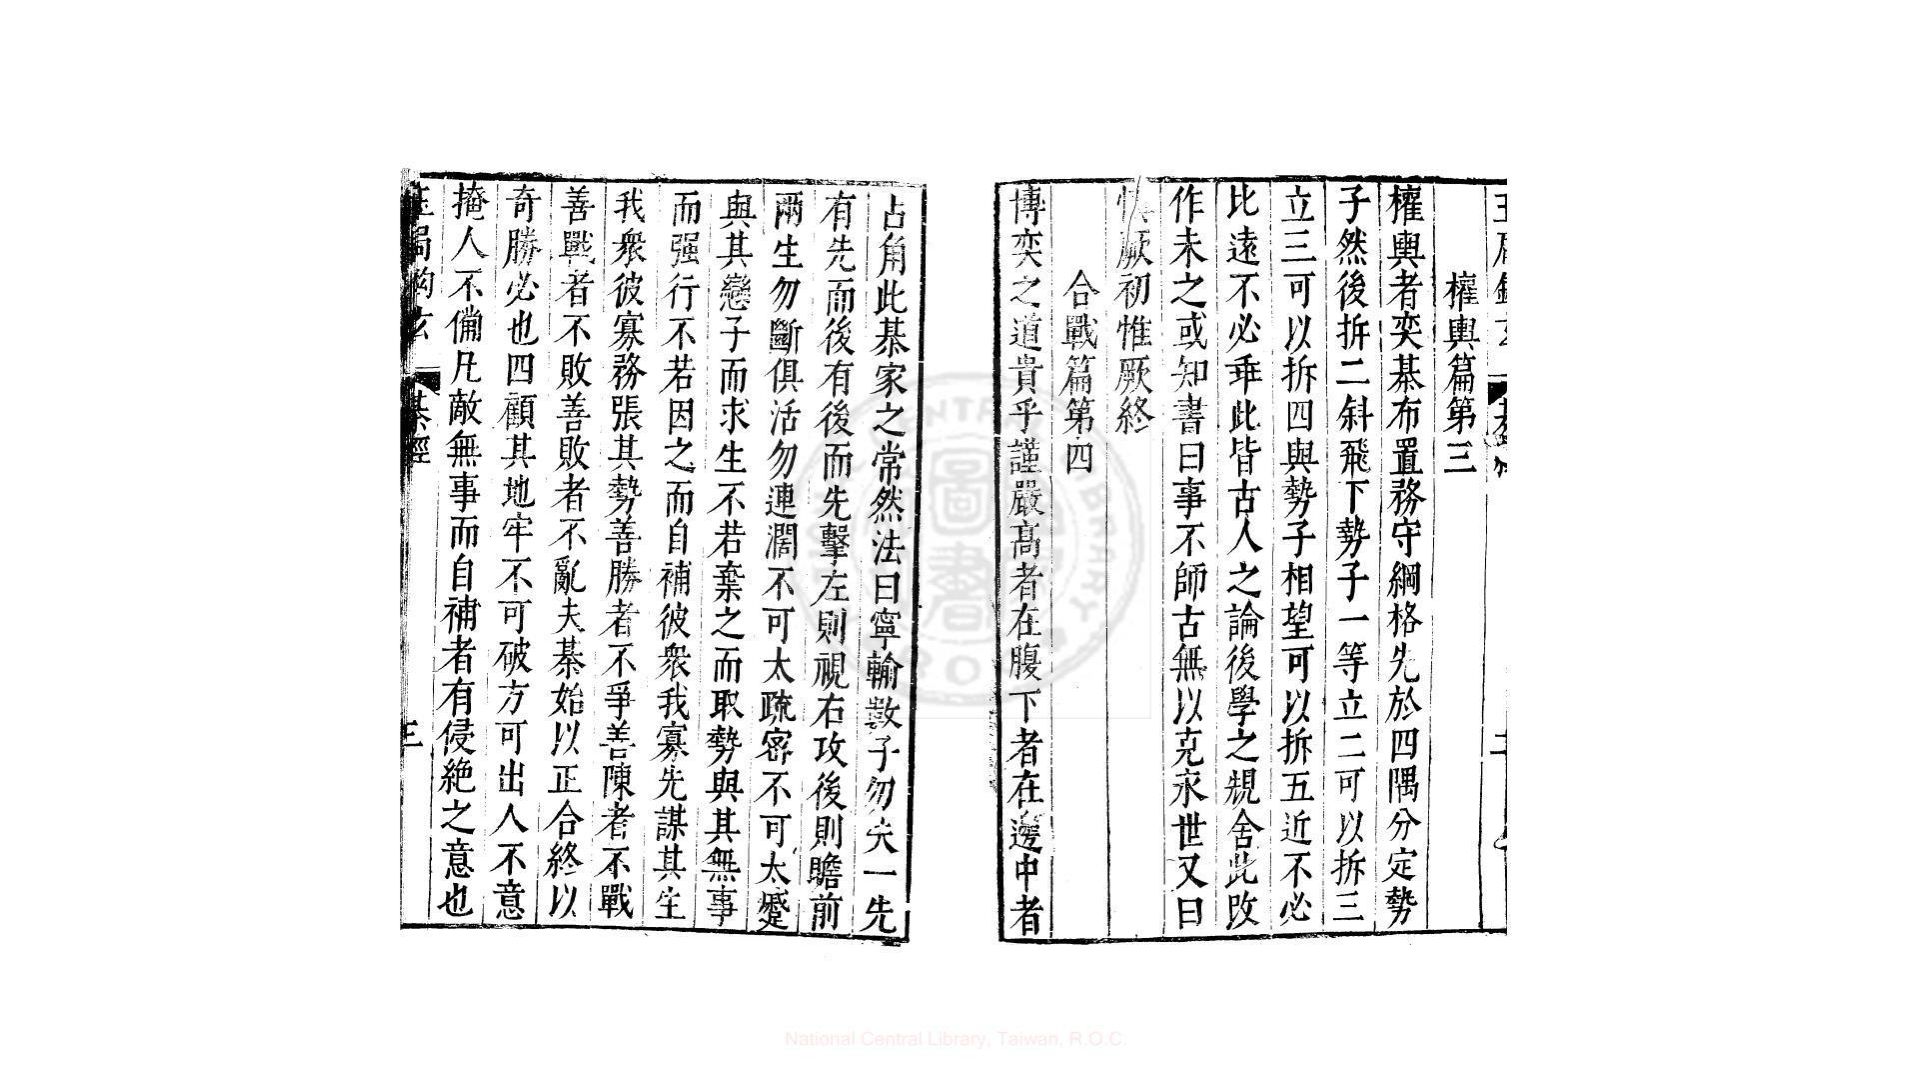 權輿篇第三
權輿者奕棊布置務守綱格先於四隅分定勢
子然後拆二斜飛下勢子一等立二可以拆三
立三可以拆四與勢子相望可以拆五近不必
比遠不必乖此皆古人之論後學之規舍此改
作未之或知書曰事不師古無以克永世又曰
厥初惟厥終
合戰篇第四
博奕之道貴乎謹嚴高者在腹下者在邊中者
占角此棊家之常然法曰寧輸數子勿失一先
有先而後有後而先擊左則視右攻後則瞻前
兩生勿斷俱活勿連濶不可太疏密不可太蹙
與其戀子而求生不若棄之而取勢與其無事
而强行不若因之而自補彼衆我寡先謀其生
我衆彼寡務張其勢善勝者不爭善陳者不戰
善戰者不敗善敗者不亂夫棊始以正合終以
奇勝必也四顧其地牢不可破方可出人不意
掩人不備凡敵無事而自補者有侵絶之意也
棊經
三
National Central Library, Taiwan, R.O.C.